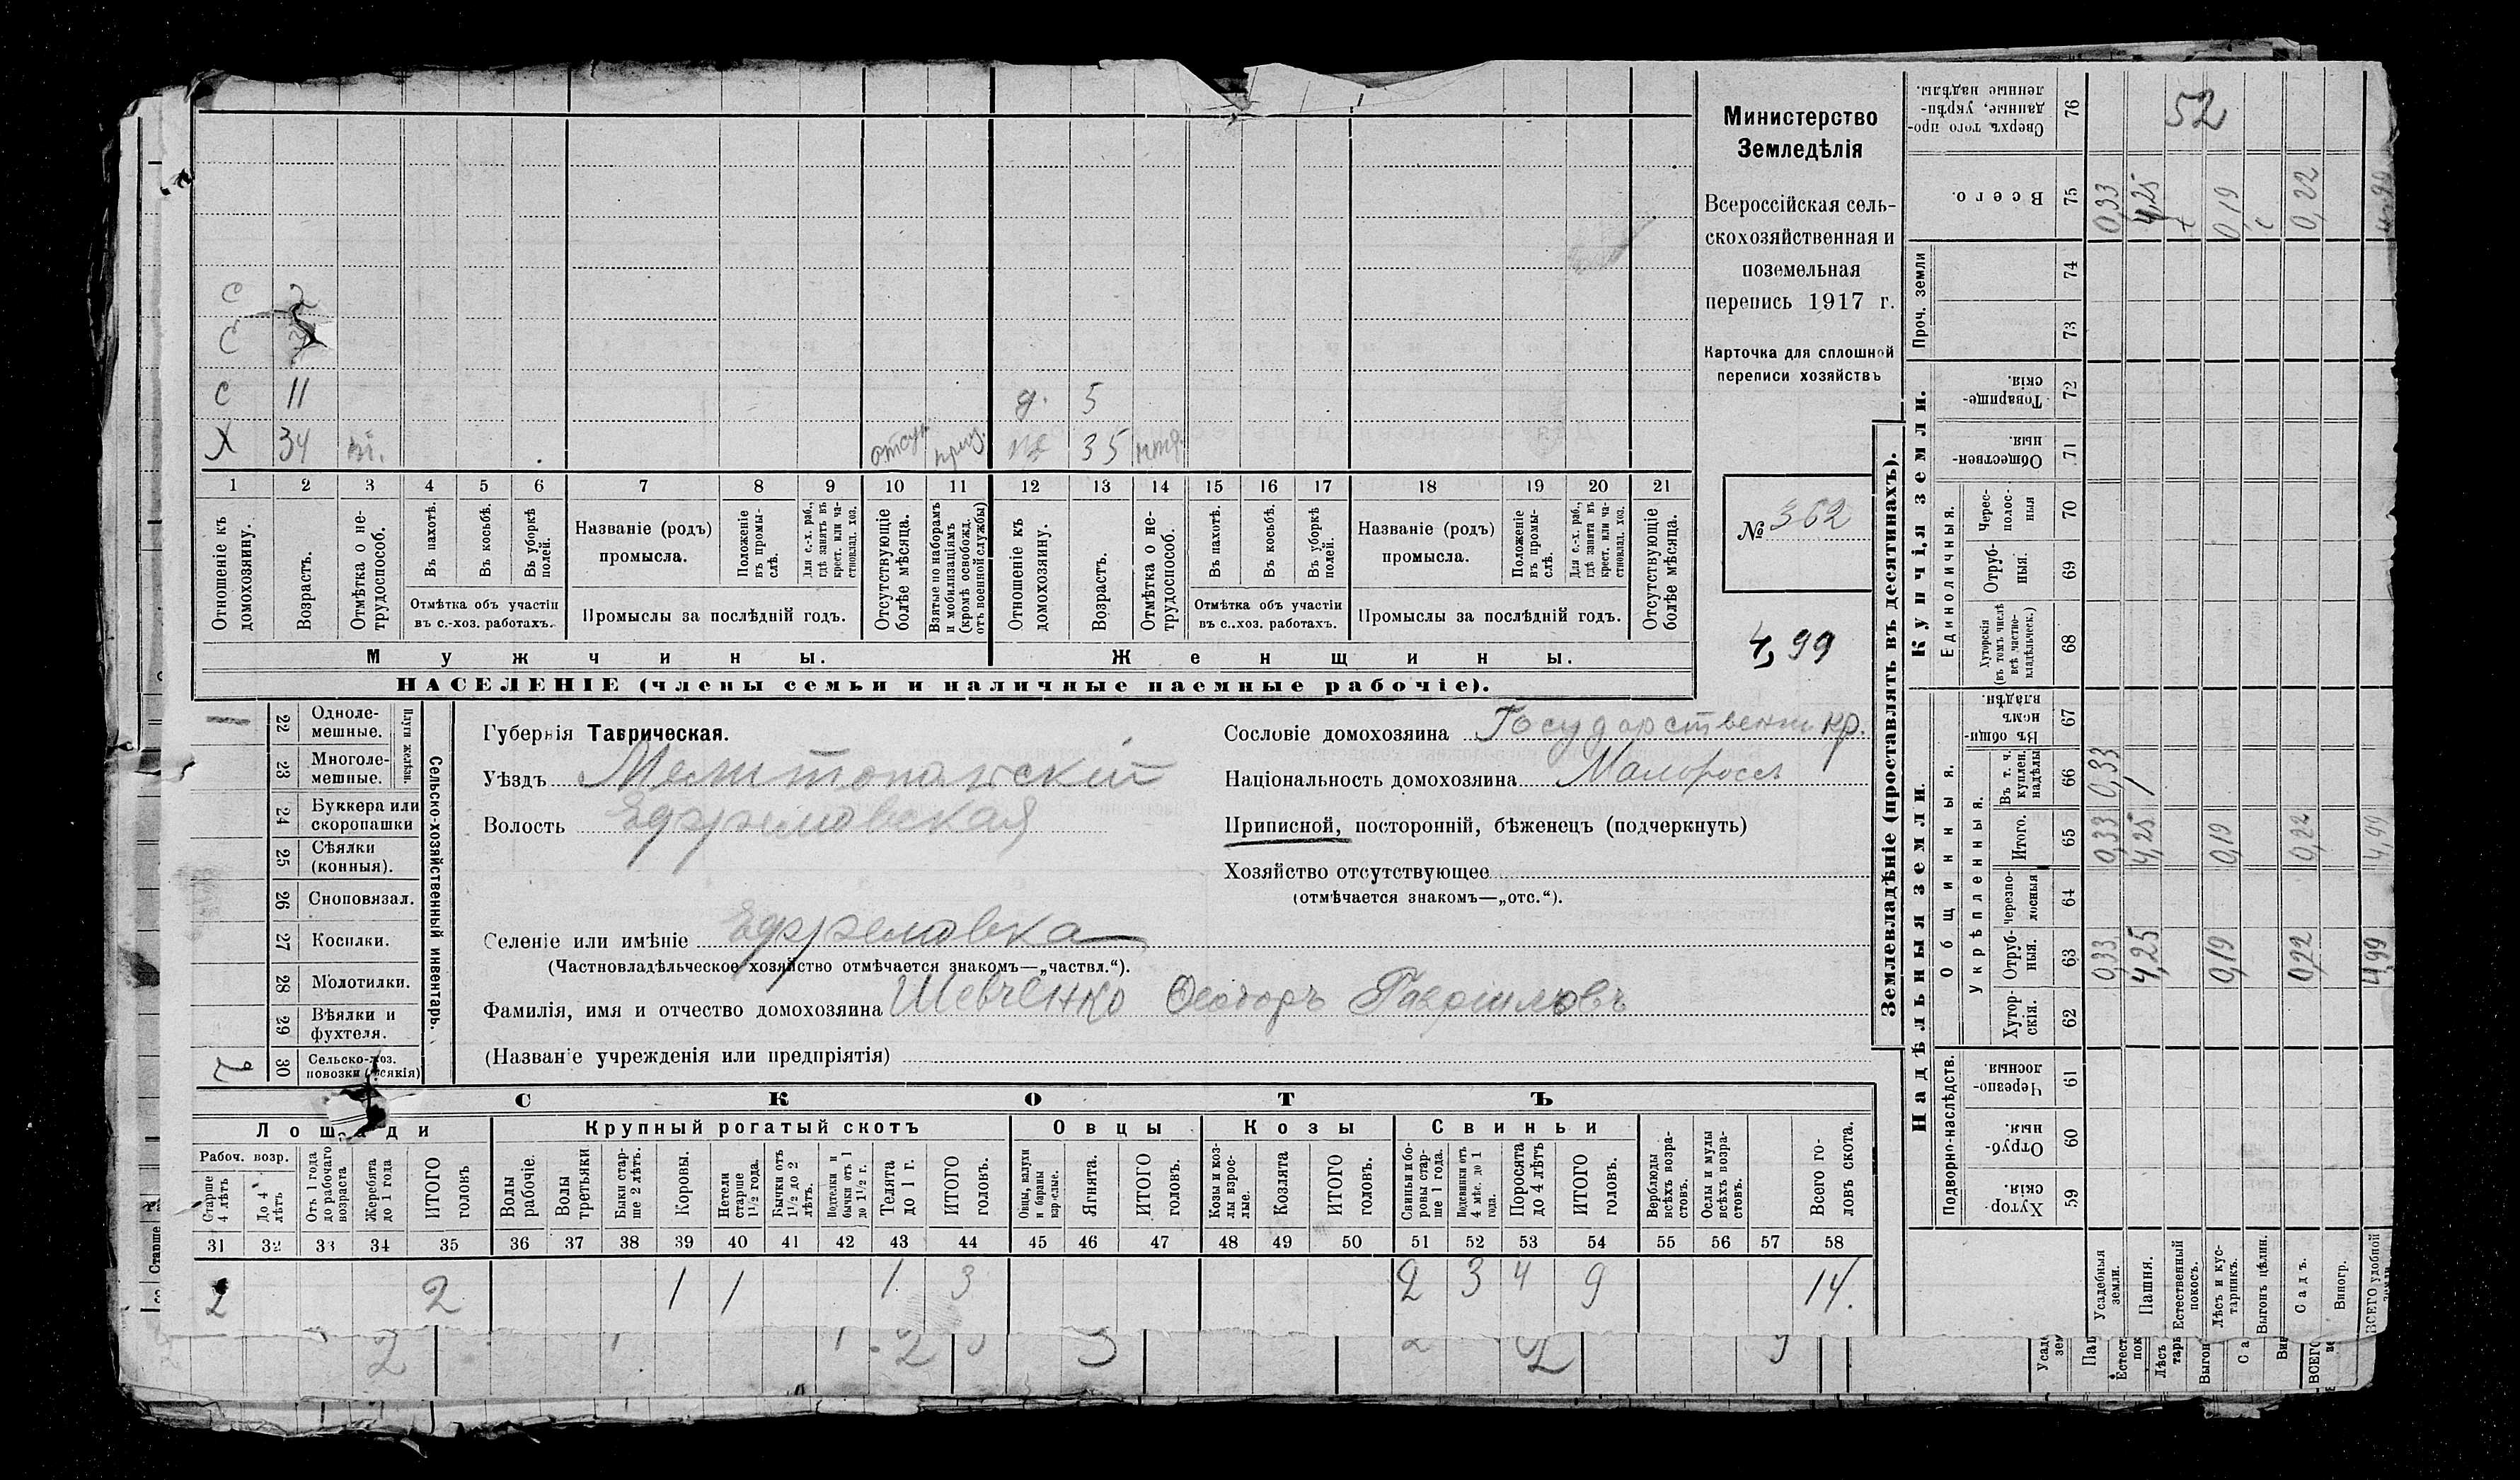 С 2
С 7
С 11 д. 5
Х 34 отсут. приз. 35
1 2 3 4 5 6 7 8 9 10 11 12 13 14 15 16 17 18 19 20 21
Отношеніе къ домохозяину.
Возрастъ.
Отмѣтка о не-
трудоспособ.
Въ пахотѣ.
Въ косьбѣ.
Въ уборкѣ
полей.
Отмѣтка объ участіи
въ с.-хоз. работахъ.
Названіе (родъ)
промысла.
Положеніе
въ промы-
слѣ.
Для с.-х. раб.,
гдѣ занятъ въ
крест. или ча-
стновлад. хоз.
Промыслы за послѣдній годъ.
Отсутствующіе
болѣе мѣсяца.
Взятые по наборамъ
и мобилизаціямъ
(кромѣ освобожд.
отъ военной службы)
Отношеніе къ
домохозяину.
Возрастъ.
Отмѣтка о не-
трудоспособ.
Въ пахотѣ.
Въ косьбѣ.
Въ уборкѣ
полей.
Отмѣтка объ участіи
въ с.-хоз. работахъ.
Названіе (родъ)
промысла.
Положеніе
въ промы-
слѣ.
Для с.-х. раб.,
гдѣ занята въ
крест. или ча-
стновлад. хоз.
Промыслы за послѣдній годъ.
Отсутствующіе
болѣе мѣсяца.
Мужчины. Женщины.
НАСЕЛЕНІЕ (члены семьи и наличные наемные рабочіе).
Министерство
Земледѣлія
Всероссійская сель-
скохозяйственная и
поземельная
перепись 1917 г.
Карточка для сплошной
переписи хозяйствъ
№ 362
4,99
Сельско-хозяйственный инвентарь.
Плуги желѣзн.
22 Одноле-
мешные.
23 Многоле-
мешные.
24 Буккера или
скоропашки
25 Сѣялки
(конныя).
26 Сноповязал.
27 Косилки.
28 Молотилки.
29 Вѣялки и
фухтеля.
2 30 Сельско-хоз.
повозки (всякія)
Губернія Таврическая.
Уѣздъ Мелитопольскій
Волость Ефремовская
Селеніе или имѣніе Ефремовка
(Частновладѣльческое хозяйство отмѣчается знакомъ—„частвл.“).
Фамилія, имя и отчество домохозяина Шевченко Феодоръ Гавриловъ
(Названіе учрежденія или предпріятія)
Сословіе домохозяина Государственн кр.
Національность домохозяина Малороссъ
Приписной, посторонній, бѣженецъ (подчеркнуть)
Хозяйство отсутствующее
(отмѣчается знакомъ—„отс.“).
СКОТЪ
Лошади Крупный рогатый скотъ Овцы Козы Свиньи
Рабоч. возр.
Старше
4 лѣтъ
До 4
лѣтъ
Отъ 1 года
до рабочаго
возраста
Жеребята
до 1 года
ИТОГО
головъ
Волы
рабочіе.
Волы
третьяки
Быки стар-
ше 2 лѣтъ.
Коровы.
Нетели
старше
1½ года.
Бычки отъ
1½ до 2
лѣтъ.
Подтелки и
бычки отъ 1
до 1½ г.
Телята
до 1 г.
ИТОГО
головъ.
Овцы, валухи
и бараны
взрослые.
Ягнята.
ИТОГО
головъ.
Козы и коз-
лы взрос-
лые.
Козлята
ИТОГО
головъ.
Свиньи и бо-
ровы стар-
ше 1 года.
Подсвинки отъ
4 мѣс. до 1
года.
Поросята
до 4 лѣтъ
ИТОГО
головъ.
Верблюды
всѣхъ возра-
стовъ.
Ослы и мулы
всѣхъ возра-
стовъ.
Всего го-
ловъ скота.
31 32 33 34 35 36 37 38 39 40 41 42 43 44 45 46 47 48 49 50 51 52 53 54 55 56 57 58
2 2 1 1 1 3 2 3 4 9 14.
Землевладѣніе (проставлять въ десятинахъ).
Надѣльныя земли. Купчія земли.
Сверхъ того про-
данные, укрѣп-
ленные надѣлы.
76 52
Всего.
75 0,33 4,25 0,19 0,22
Проч. земли
74
73
Товарище-
скія.
72
Обществен-
ныя
71
Единоличныя.
Черес-
полос-
ныя
70
Отруб-
ныя.
69
Хуторскія
(въ томъ числѣ
всѣ частно-
владѣльческ.)
68
Общинныя.
Въ общи-
номъ
владѣн.
67
Укрѣпленныя.
Въ т. ч.
куплен.
надѣлы
66 0,33
Итого.
65 0,33 4,25 0,19 0,22 4,99
Черезпо-
лосныя
64
Отруб-
ныя.
63 0,33 4,25 0,19 0,22 4,99
Хутор-
скія.
62
Подворно-наслѣдств.
Черезпо-
лосныя.
61
Отруб-
ныя.
60
Хутор-
скія.
59
Усадебныя
земли.
Пашня.
Естественный
покосъ.
Лѣсъ и кус-
тарникъ.
Выгонъ цѣлин.
Садъ.
Виногр.
ВСЕГО удобной